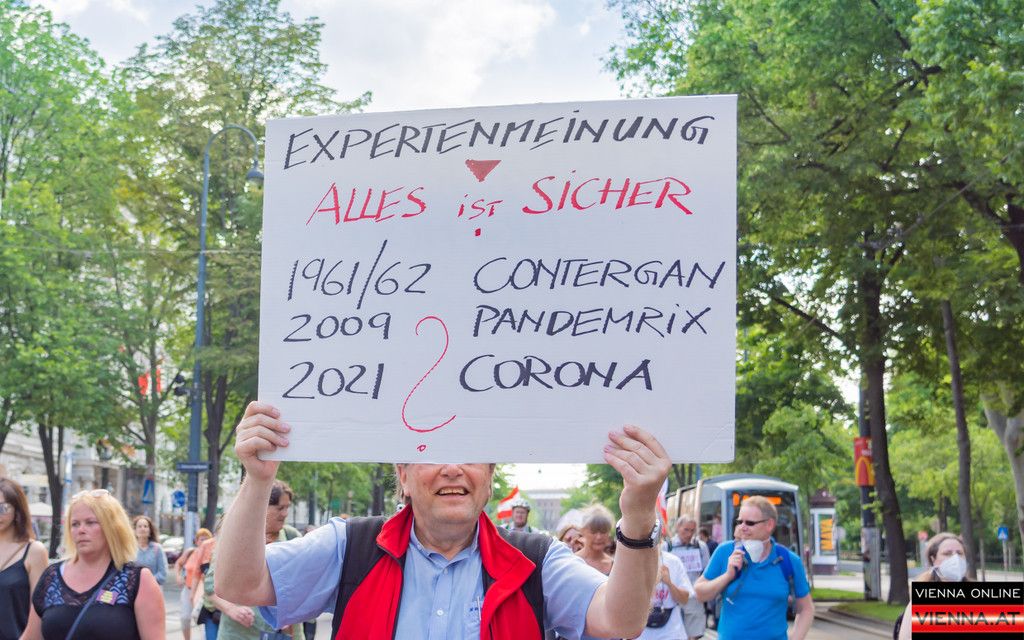 EXPERTENMEINUNG
ALLES iST SICHER
1961/62 CONTERGAN
2009 PANDEMRIX
2021 ? CORONA
VIENNA ONLINE
VIENNA.AT